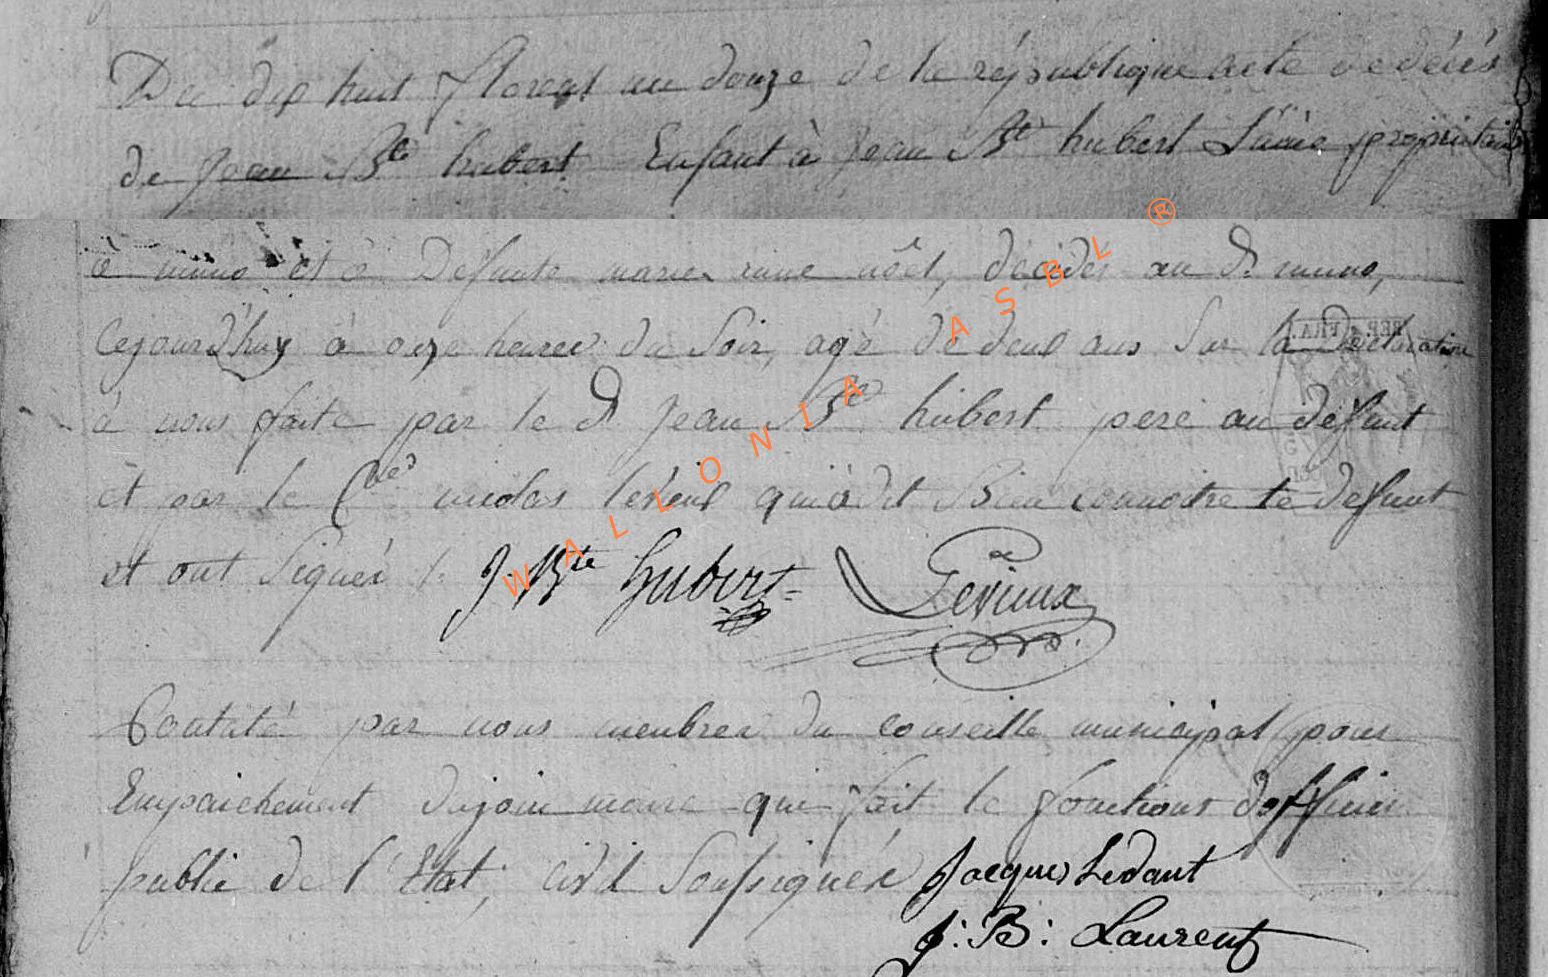 Du dix huit floreal an douze de la république acte de décés
de Jean Bte hubert Enfant à Jean Bte hubert L'ainé propriétaire
à muno et à Defunte marie noël, décédés au dt muno,
Cejourd'huy à onze heures du Soir, agé de deux ans Sur la Déclaration
à nous faite par le dt Jean Bte hubert pere au défunt
et par le nicolas qui a dit Bien connoitre le defunt
et ont Signés /.
J. Bte Hubert Lerieux
Constaté par nous menbres du conseille municipal pour
Empaichement dajoin maire qui fait le fonctions dofficier
public de l'Etat, civil Soussignés Jacques Ledant
J: B: Laurent
WALLONIA ASBL ®
REP. FRA